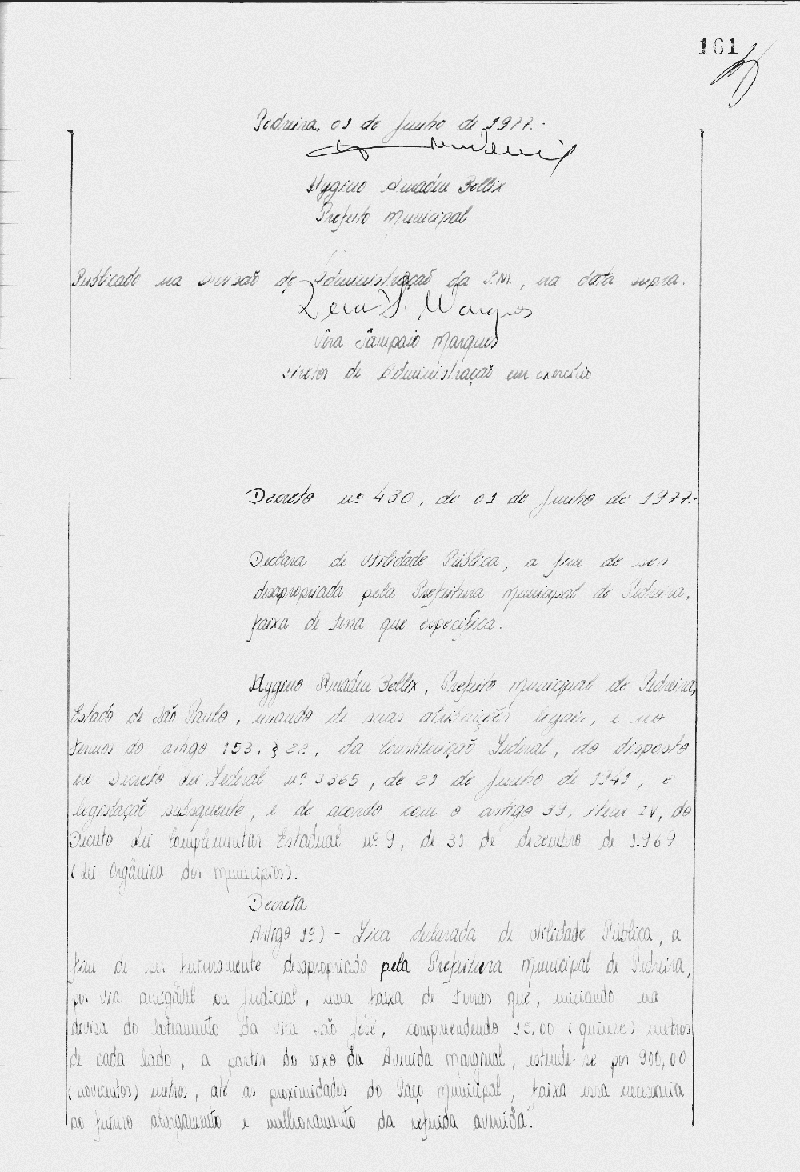 161
Pedreira, 01 de Junho de 1977.-
Hygino Amadeu Bellix
Prefeito Municipal
Publicado na Divisão de Administração da P.M., na data supra.
Vera S. Marques
Vera Sampaio Marques
Diretor de Administração em exercício
Decreto nº 430, de 01 de Junho de 1977.-
Declara de Utilidade Pública, a fim de ser
desapropriada pela Prefeitura Municipal de Pedreira,
faixa de terra que especifica.
Hygino Amadeu Bellix, Prefeito Municipal de Pedreira,
Estado de São Paulo, usando de suas atribuições legais, e nos
termos do artigo 153, § 22, da Constituição Federal, do disposto
no Decreto Lei Federal nº 3365, de 21 de Junho de 1941, e
legislação subsquente, e de acordo com o artigo 39, item IV, do
Decreto Lei Complementar Estadual nº 9, de 31 de dezembro de 1969
(Lei Orgânica dos Municípios).
Decreta
Artigo 1º) - Fica declarada de utilidade Pública, a
fim de ser futuramente desapropriado pela Prefeitura Municipal de Pedreira,
por via amigável ou Judicial, uma faixa de terras que, iniciando na
divisa do loteamento da Vila São José, compreendendo 15,00 (quinze) metros
de cada lado, a partir do eixo da Avenida Marginal, estende-se por 900,00
(novecentos) metros, até as proximidades do Paço Municipal, faixa essa necessária
ao futuro alargamento e melhoramento da referida avenida.